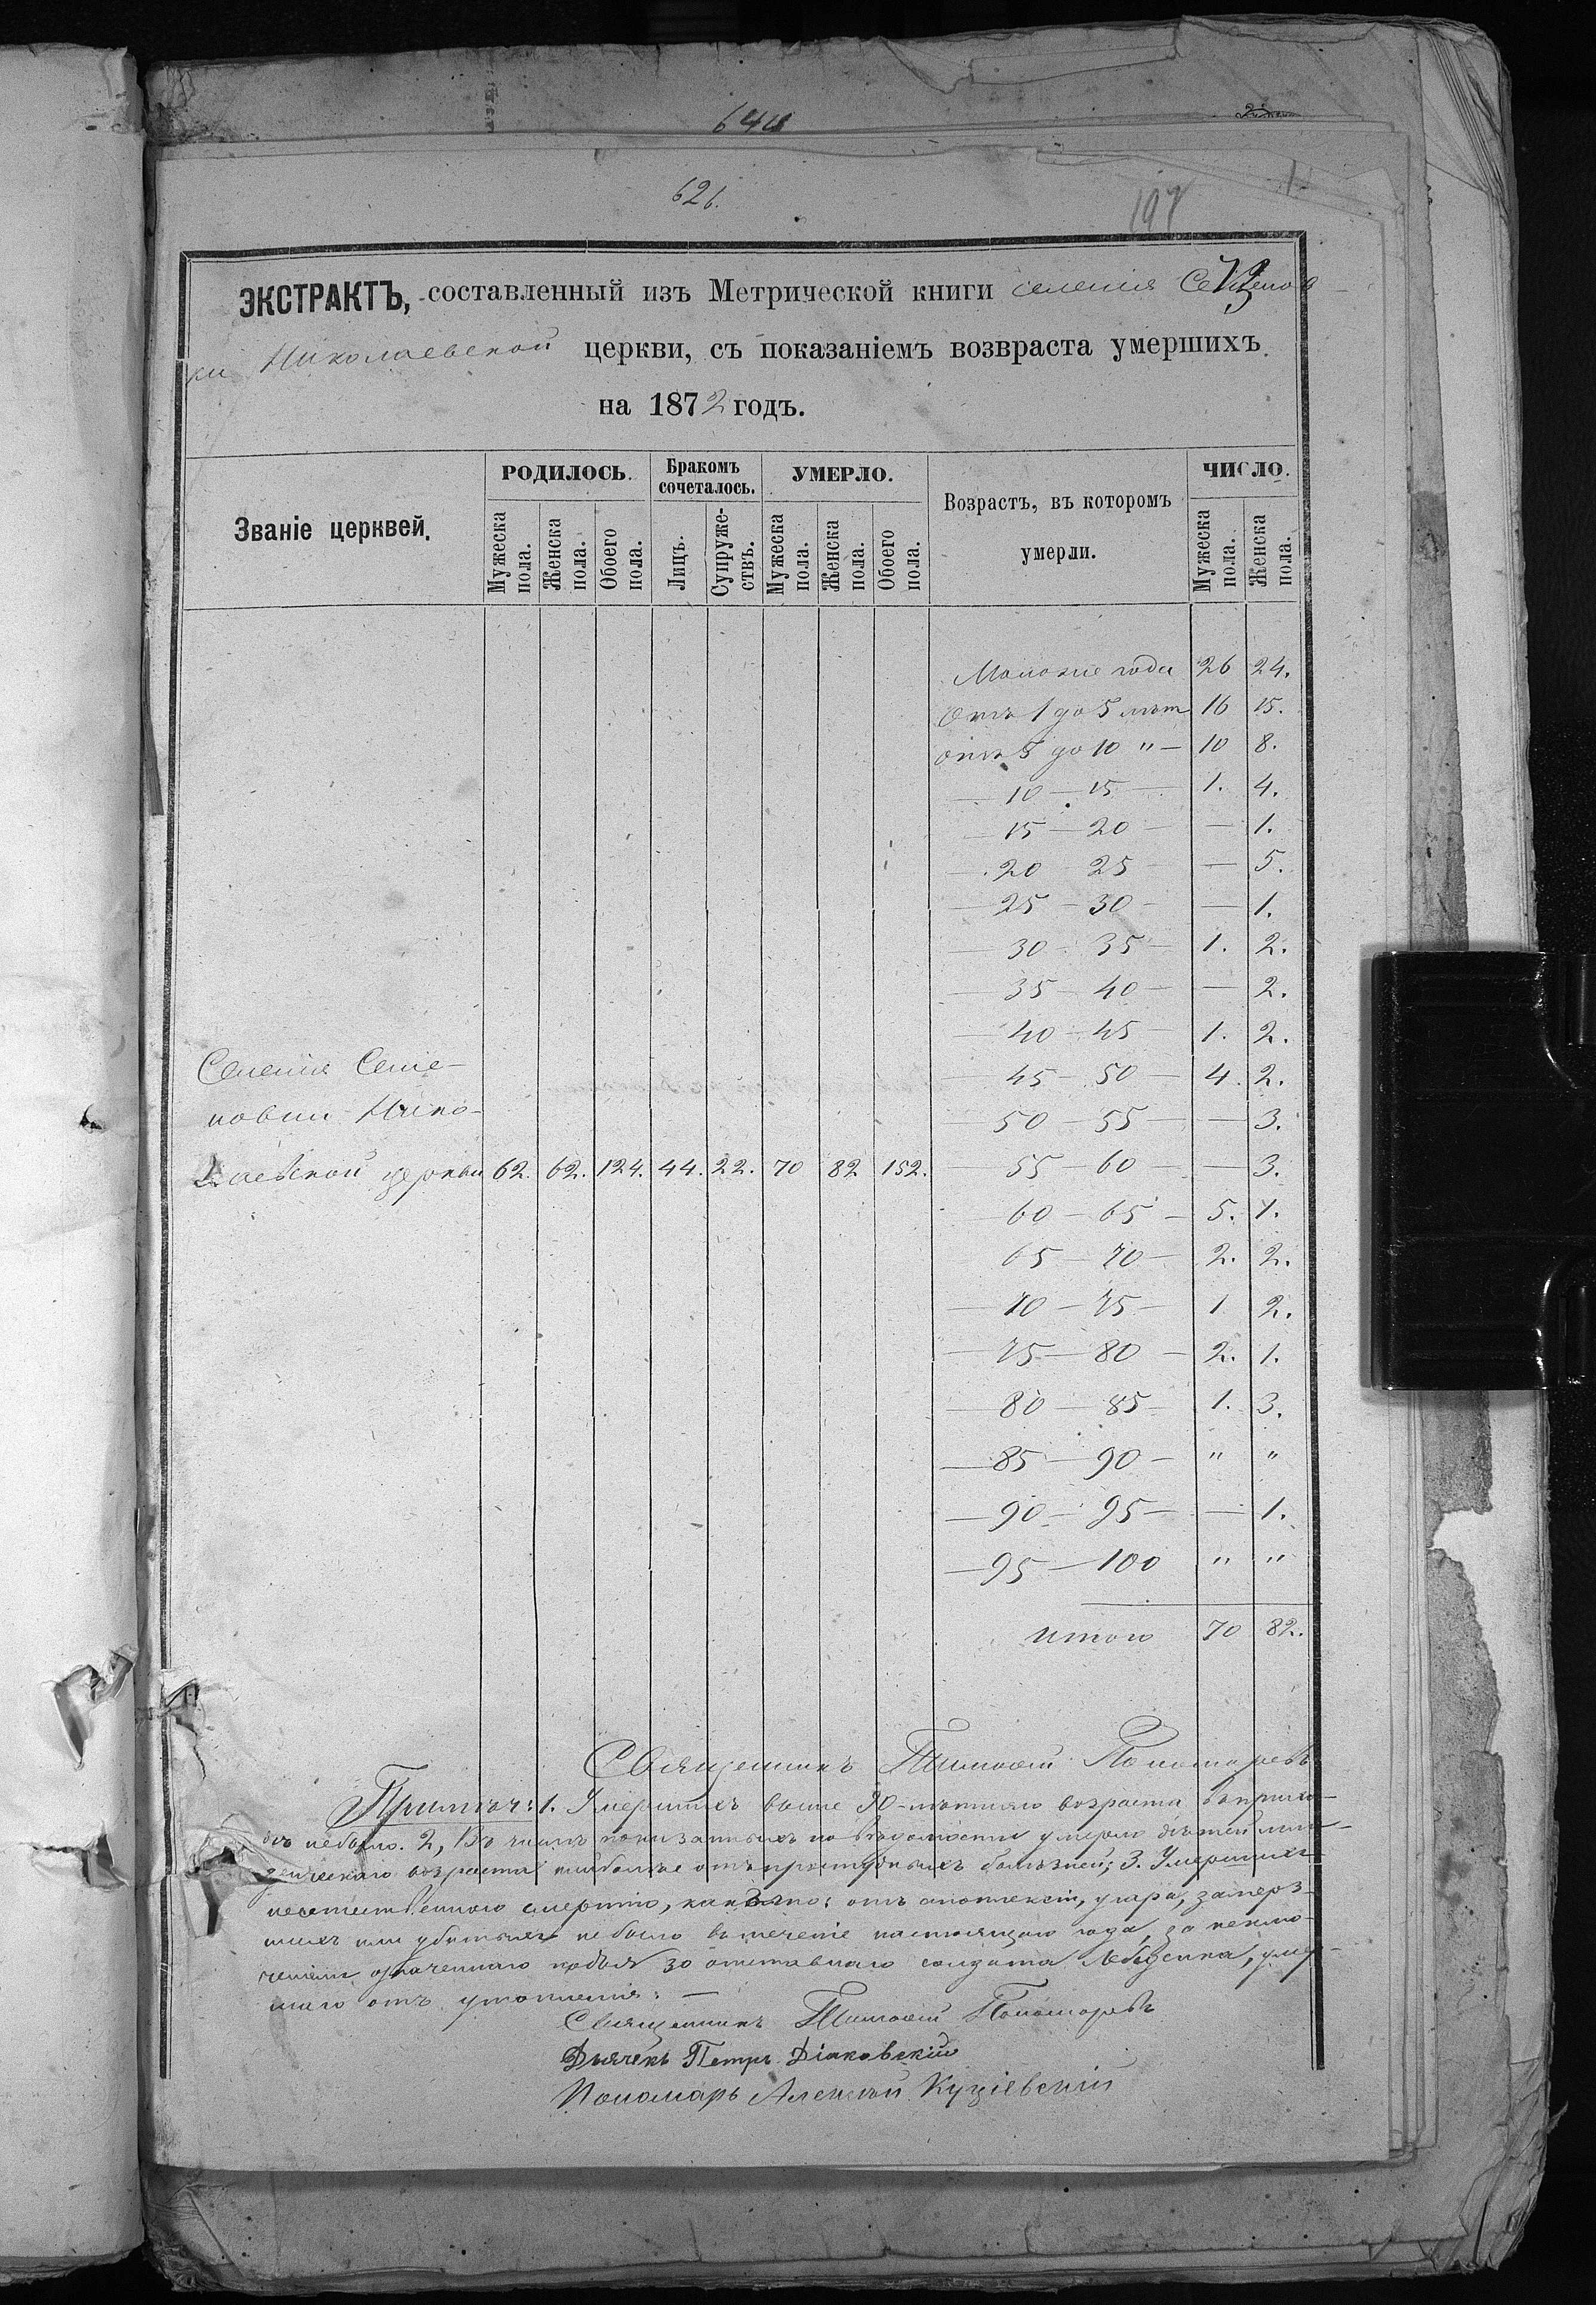 644
626.
197
ЭКСТРАКТЪ, составленный изъ Метрической книги селенія Семенов
ки Николаевской церкви, съ показаніемъ возвраста умершихъ
на 1872 годъ.
Званіе церквей.
РОДИЛОСЬ.
Бракомъ сочеталось.
УМЕРЛО.
Возрастъ, въ которомъ умерли.
ЧИСЛО.
Мужеска пола.
Женска пола.
Обоего пола.
Лицъ.
Супружествъ.
Мужеска пола.
Женска пола.
Обоего пола.
Мужеска пола.
Женска пола.
годы 26 24.
Отъ 1 до 5 лѣт 16 15.
отъ 5 до 10 " — 10 8.
— 10 — 15 — 1. 4.
— 15 — 20 — — 1.
— 20 — 25 — — 5.
— 25 — 30 — — 1.
— 30 — 35 — 1. 2.
— 35 — 40 — — 2.
— 40 — 45 — 1. 2.
— 45 — 50 — 4. 2.
— 50 — 55 — — 3.
Селенія Семе-
новки Нико-
лаевской церкви 62. 62. 124. 44. 22. 70 82 152. 55 — 60 — 3.
60 — 65 — 5. 1.
65 — 70 — 2. 2.
— 70 — 75 — 1 2.
— 75 — 80 — 2. 1.
— 80 — 85 — 1. 3.
— 85 — 90 — " "
— 90 — 95 — — 1.
— 95 — 100 " "
итого 70 82.
Священникъ Тимофей Пономаревъ
Примѣч: 1. Умершихъ выше 90-лѣтняго возраста въ прихо-
дѣ небыло. 2, Въ числѣ показанныхъ по вѣдомости умерло дѣтей мла-
денческаго возраста наиболѣе отъ простудныхъ болѣзней; 3. Умершихъ
неестественною смертію, какъ то: отъ апоплексіи, угара, замерз-
шихъ или убитыхъ небыло въ теченіе настоящаго года, за исклю-
ченіем означеннаго подъ № 30 отставнаго солдата умер-
шаго отъ утопленія: —
Священникъ Тимофей Пономаревъ
Дьячекъ Петръ Діаковскій
Пономарь Алексѣй